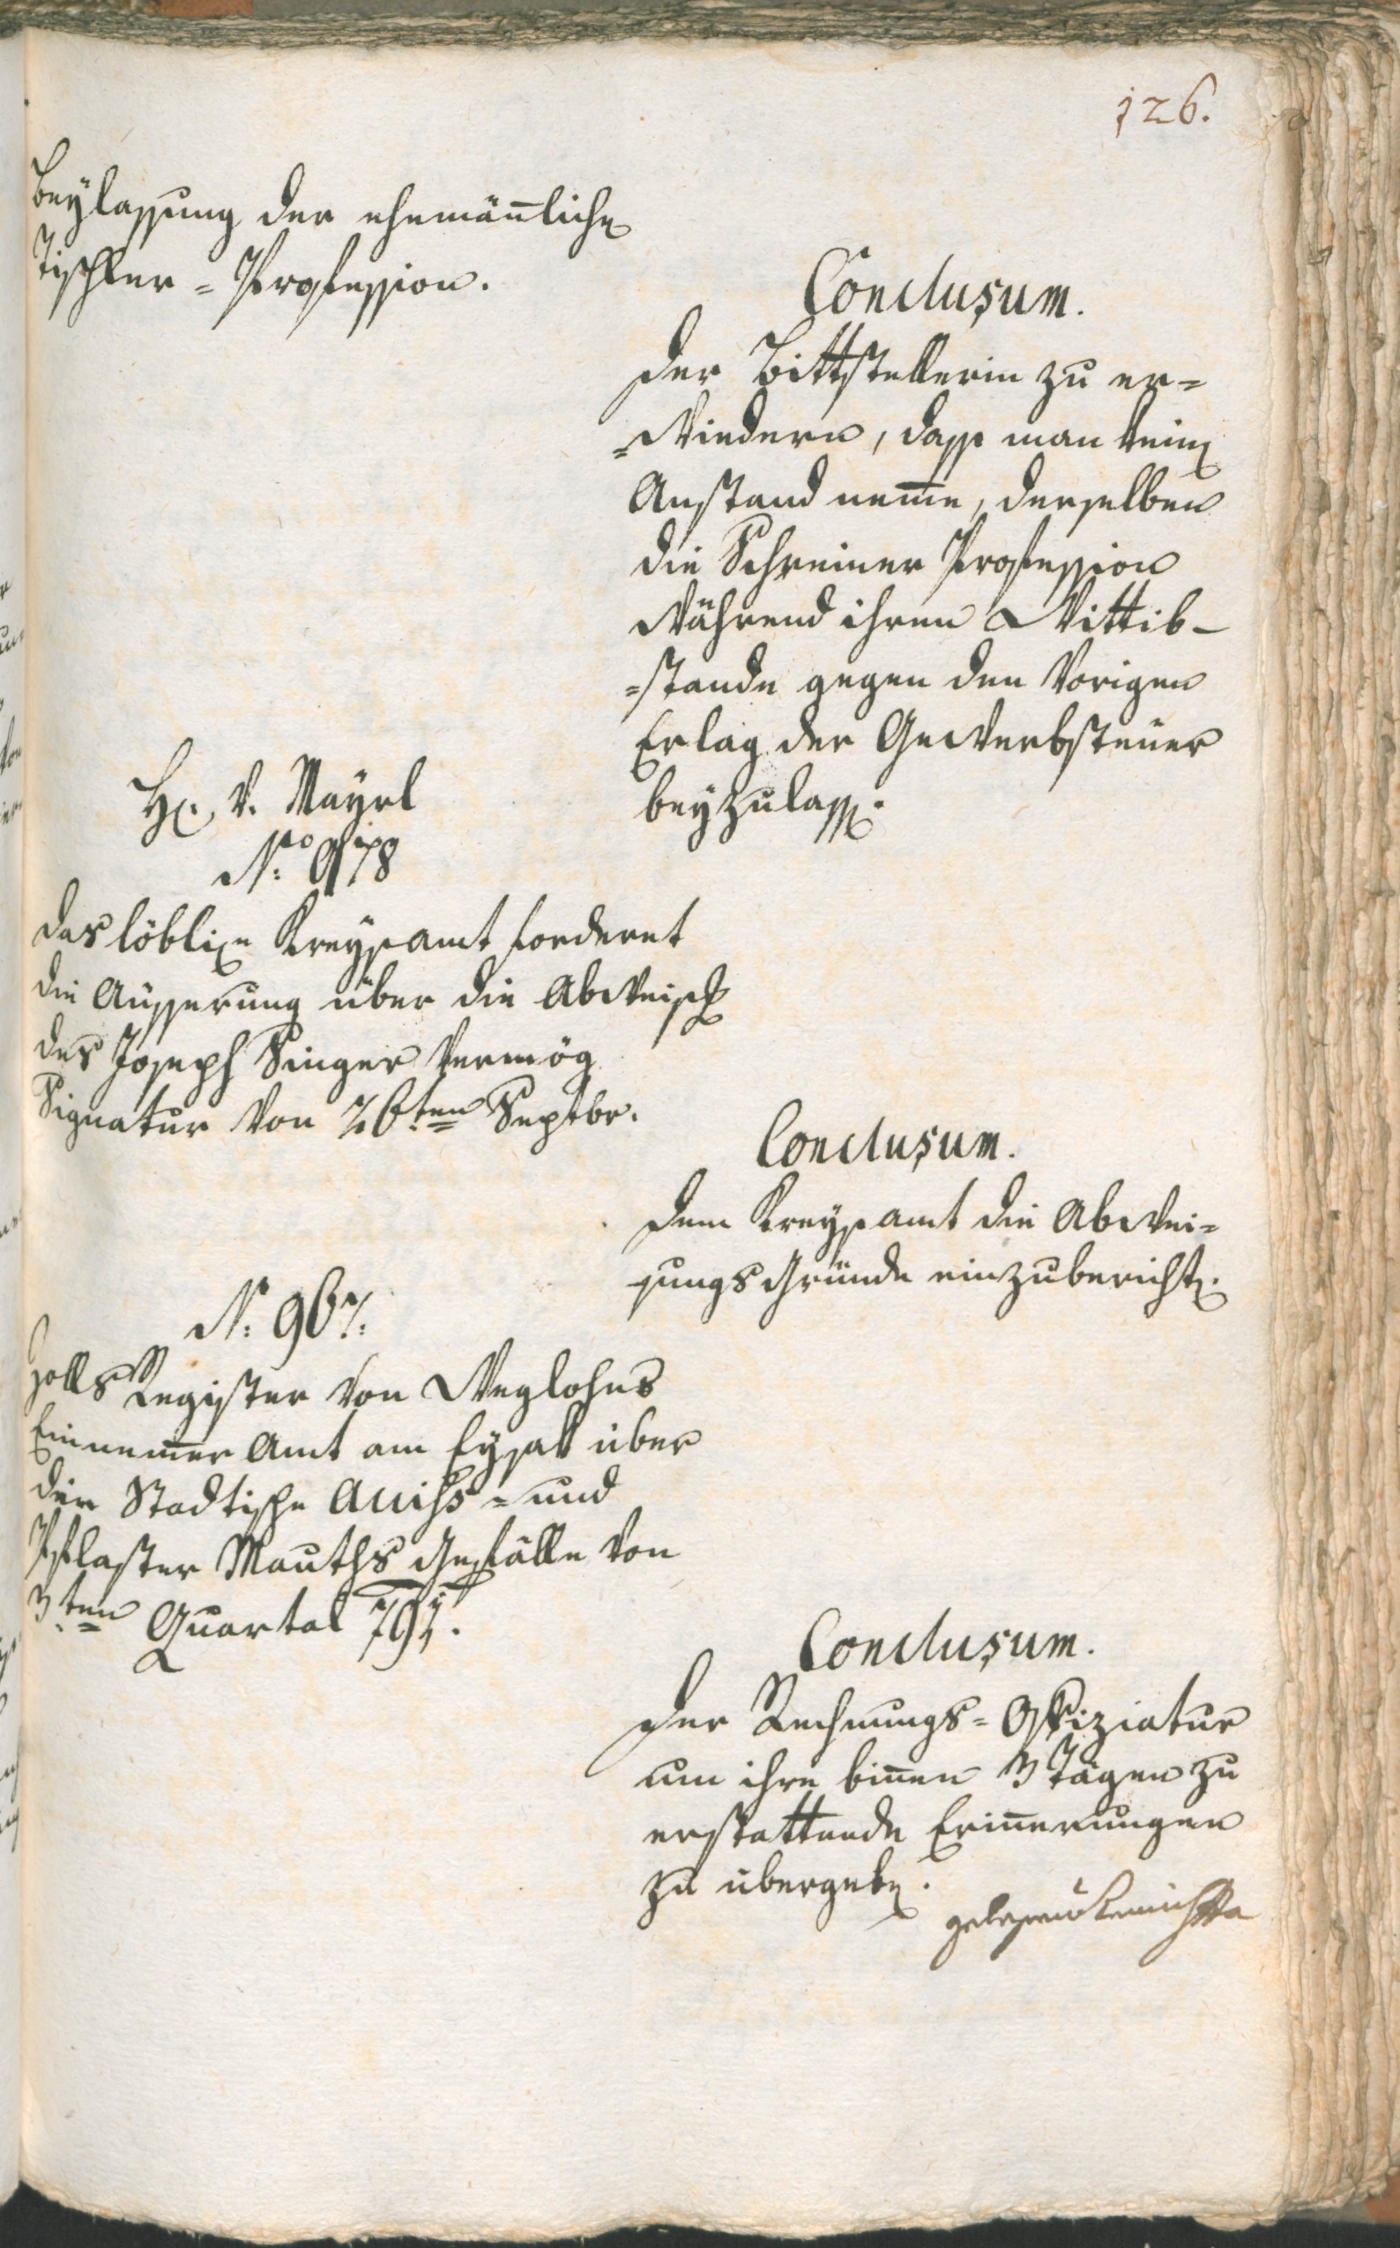 126.
Beylassung der ehemäñlichen
Tischler=Profession.
Conclusum.
Der Bittstellerin zu er=
=wiedern, dass man keinen
Anstand nem̄e, derselben
die Schreiner Profession
während ihrem Wittib-
=stande gegen den vorigen
Erlag der Gewerbsteuer
beyzulassen.
H. v. Mayrl
No.
das löbliche Kreysamt forderet
die Äusserung über die Abweisung
des Joseph Singer vermög
Signatur von 26ten Septbr.
Conclusum.
Dem Kreysamt die Abwei=
sungs Gründe einzuberichten.
N: 967.
Zolls Register von Weglohns
Einnem̄er Amt am Eysak über
die Stadtische Acciss= und
Pflaster Mauths Gefälle von
3ten Quartal 791.
Conclusum.
Der Rechnungs=Offiziatur
um ihre biñen 3 Tägen zu
erstattende Eriñerungen
zu übergeben.